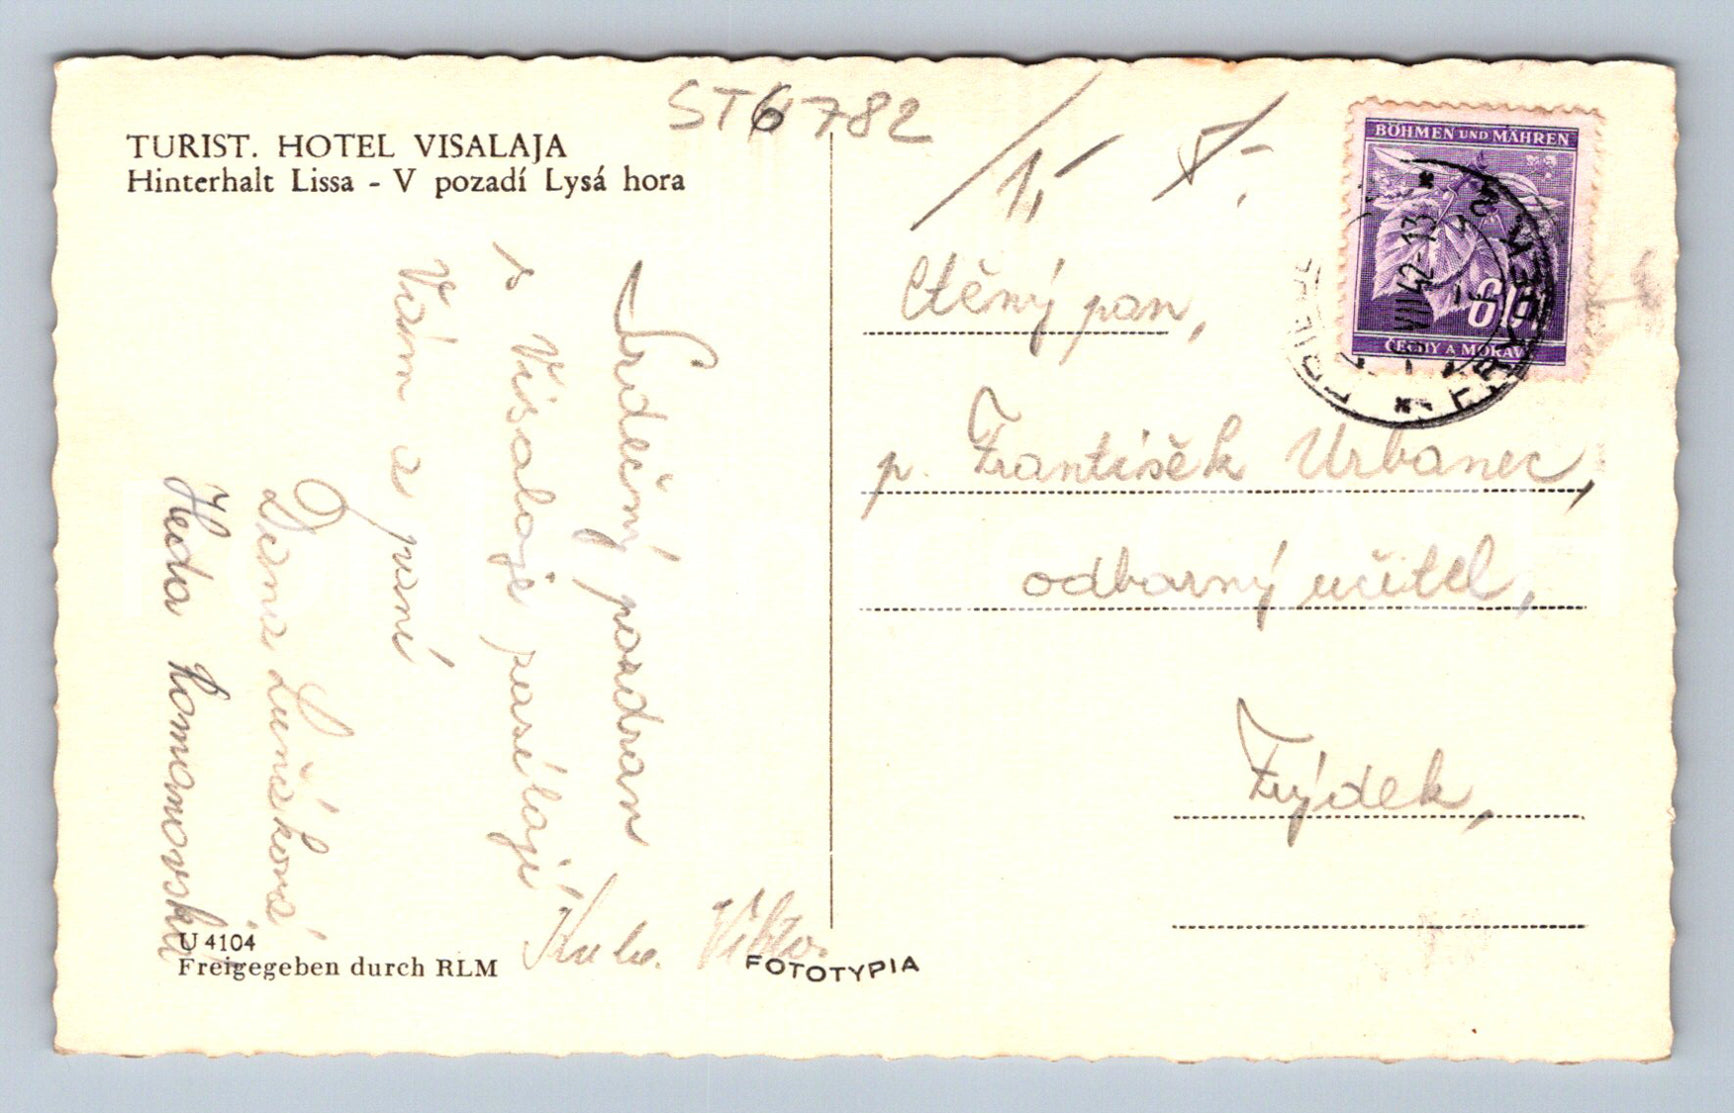 TURIST. HOTEL VISALAJA
Hinterhalt Lissa - V pozadí Lysá hora
ST 6782
Srdečný pozdrav
s Visalaje posílají
Vám a paní
Dana Lunišková
Heda Romanovská
Kuba. Viktor.
U 4104
Freigegeben durch RLM
FOTOTYPIA
1,- 5,-
BÖHMEN UND MÄHREN
60
ČECHY A MORAVA
VII 42-13
Ctěný pan,
p. František Urbanec,
odborný učitel,
Frýdek,